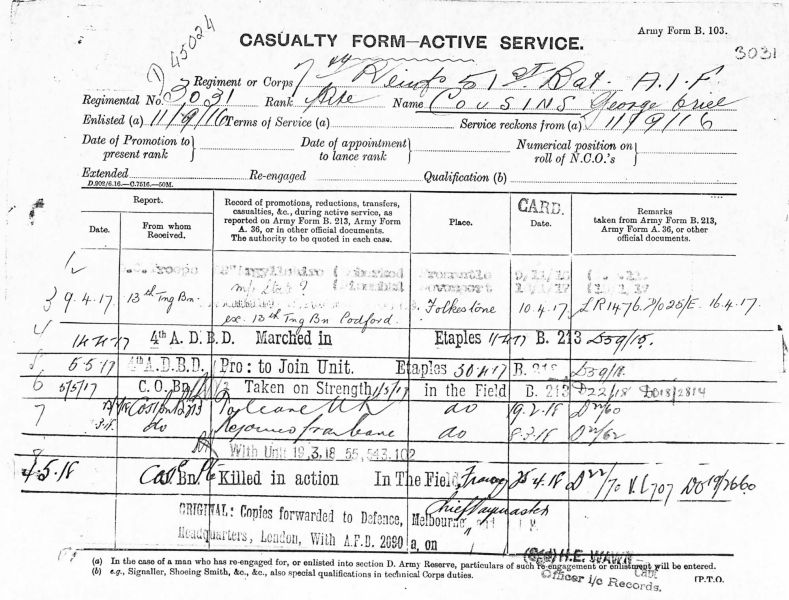 Army Form B. 103.
D 45024
CASUALTY FORM—ACTIVE SERVICE.
3031
Regiment or Corps 7th Reinfs 51st Bat. A.I.F
Regimental No. 3031 Rank Pte Name COUSINS George
Enlisted (a) 11/9/16 Terms of Service (a) Service reckons from (a) 11/9/16
Date of Promotion to present rank } Date of appointment to lance rank } Numerical position on roll of N.C.O.'s }
Extended Re-engaged Qualification (b)
D.902/6.16.—C.7516.—50M.
Report. Record of promotions, reductions, transfers, casualties, &c., during active service, as reported on Army Form B. 213, Army Form A. 36, or in other official documents. The authority to be quoted in each case. Place. CARD. Date. Remarks taken from Army Form B. 213, Army Form A. 36, or other official documents.
Date. From whom Received.
1
2
3 9.4.17 13th Tng Bn. ex. 13th Tng Bn Codford. Folkestone 10.4.17 16.4.17.
4 4th A. D. B. D. Marched in Etaples B. 213 D59/15.
5 5/5/17 4th A.D.B.D. Pro: to Join Unit. Etaples 30 4 17 B. 213 D59/18.
6 5/5/17 C. O. Bn Taken on Strength 1/5/17 in the Field B. 213 D22/18
7 To Leave UK do 19.2.18 D22/60
do Rejoined from Leave do 8.3.18 D22/62
With Unit 19.3.18 55,543.102
4.5.18 Bn. Killed in action In The Field, France 25.4.18
Chief Paymaster
ORIGINAL: Copies forwarded to Defence, Melbourne and
Headquarters, London, With A.F.B. 2090 a, on
(Sgd) H.E. WAWN Capt
Officer i/c Records.
(a) In the case of a man who has re-engaged for, or enlisted into section D. Army Reserve, particulars of such re-engagement or enlistment will be entered.
(b) e.g., Signaller, Shoeing Smith, &c., &c., also special qualifications in technical Corps duties.
[P.T.O.